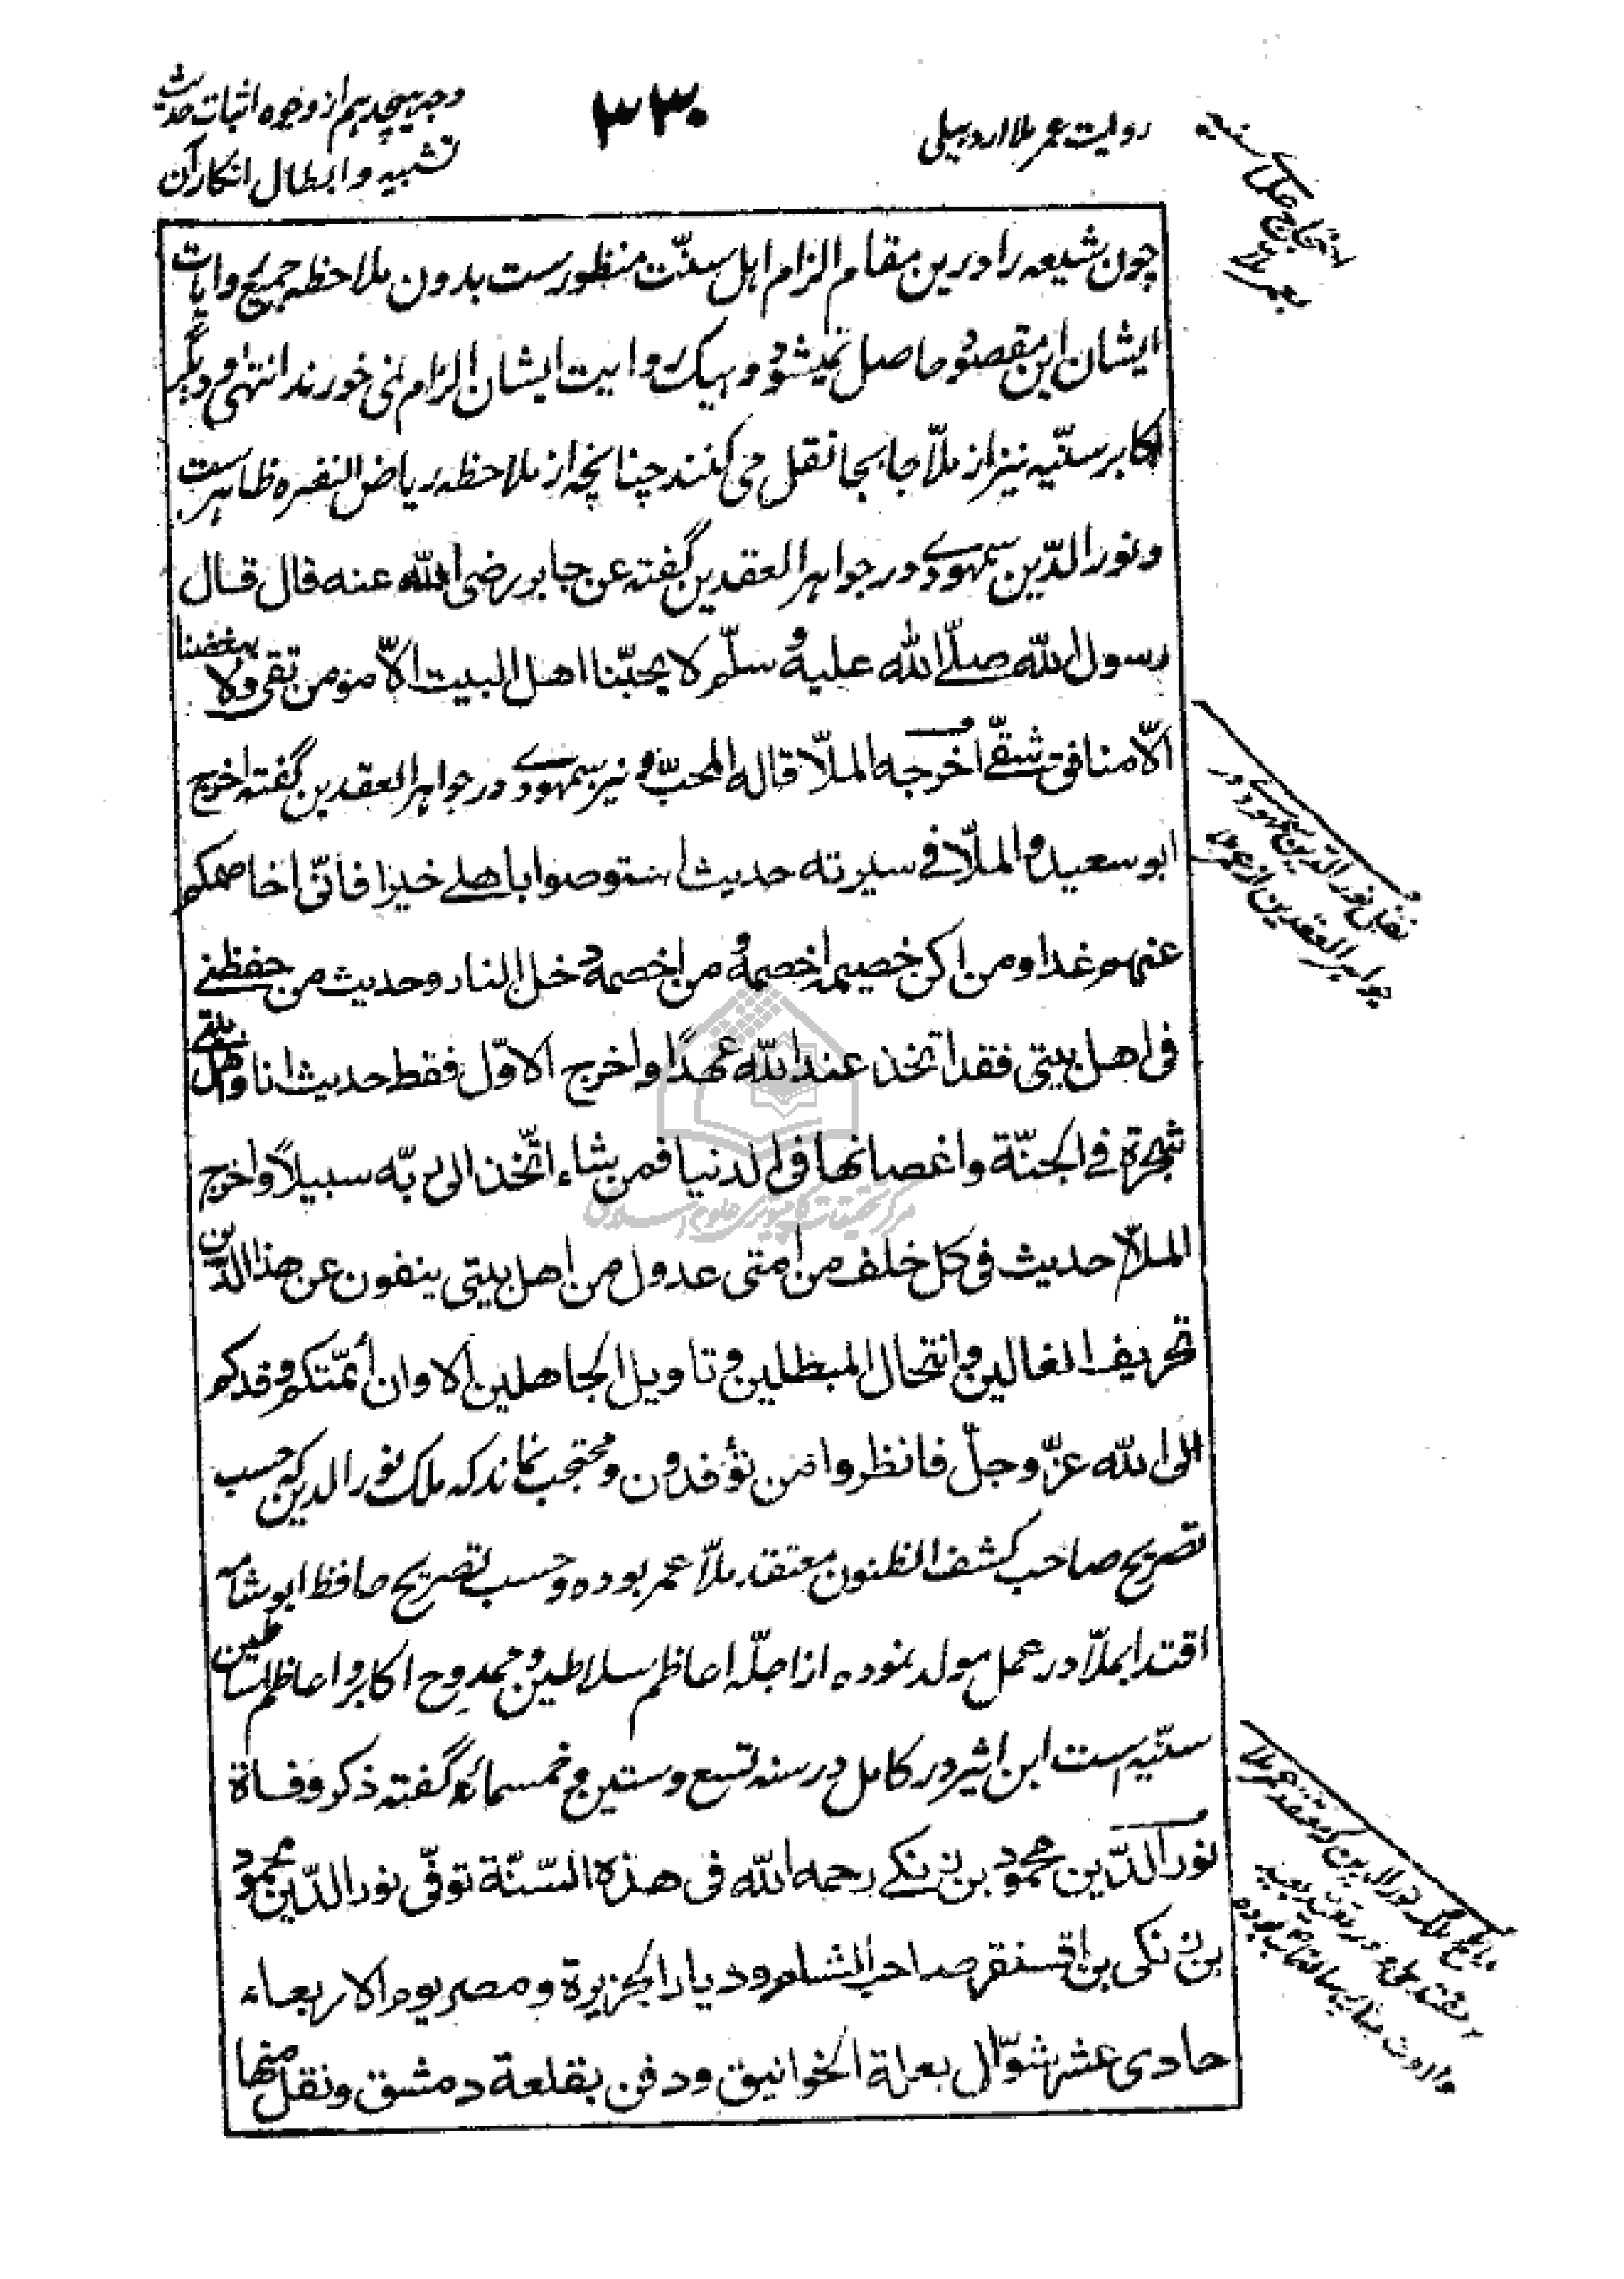 روایت عمر ملا اردبیلی
۳۳۰
وجه هیجدهم از وجوه اثبات حدیث
تشبیه و ابطال انکار آن
احتجاج علمای سنیه
بعمر ملا
چون شیعه را درین مقام الزام اهل سنّت منظورست بدون ملاحظه جمیع روایات
ایشان این مقصود حاصل نمیشود و بیک روایت ایشان الزام نمی خورند انتهی و دیگر
اکابر سنّیه نیز از ملّا جابجا نقل می کنند چنانچه از ملاحظه ریاض النضره ظاهرست
و نور الدّین سمهودی در جواهر العقدین گفته عن جابر رضی الله عنه قال قال
رسول الله صلّے الله علیه و سلّم لا یحبّنا اهل البیت الاّ مومن تقی ولا یبغضنا
الاّ منافق شقّے اخرجه الملاّ قاله المحبّ و نیز سمهودی در جواهر العقدین گفته اخرج
ابو سعید و الملاّ فے سیرته حدیث استوصوا باهلے خیرا فانّی اخاصمکم
عنهم غدا و من اکن خصیمه اخصمه و من اخصمه دخل النار و حدیث من حفظنے
فی اهل بیتی فقد اتخذ عند الله عهدًا و اخرج الاوّل فقط حدیث انا و اهل بیتے
شجرة فے الجنّة و اغصانها فی الدنیا فمن شاء اتّخذ الی ربّه سبیلاً و اخرج
الملاّ حدیث فی کل خلف من امتی عدول من اهل بیتی ینفون عن هذا الدّین
تحریف الغالین و انتحال المبطلین و تاویل الجاهلین الا و ان أئمّتکم وفدکم
الی الله عزّ و جلّ فانظروا من تؤفدون و محتجب نماند که ملک نور الدین که حسب
تصریح صاحب کشف الظنون معتقد ملّا عمر بوده و حسب تصریح حافظ ابو شامه
اقتدا بملّا در عمل مولد نموده از اجلّه اعاظم سلاطین و ممدوح اکابر و اعاظم اساطین
سنّیه است ابن اثیر در کامل در سنه تسع و ستین و خمسمائه گفته ذکر وفاة
نور الدّین محمود بن زنکے رحمه الله فی هذه السّنّة توفّی نور الدّین محمود
بن زنکی بن اقسنقر صاحب الشام و دیار الجزیرة و مصر یوم الاربعاء
حادی عشر شوّال بعلة الخوانیق و دفن بقلعة دمشق و نقل منها
نقل نور الدّین سمهودے در
جواهر العقدین از عمر ملا
مرکز تحقیقات کامپیوتری علوم اسلامی